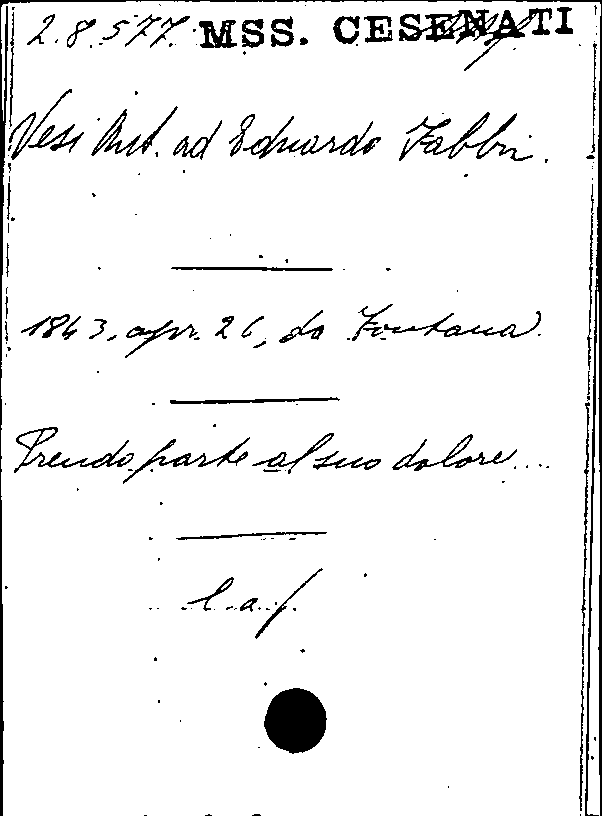 2.8.577. MSS. CESENATI
Vesi Ant. ad Eduardo Fabbri.
1843, apr. 26, da Fontana
Prendo parte al suo dolore....
l.a.f.